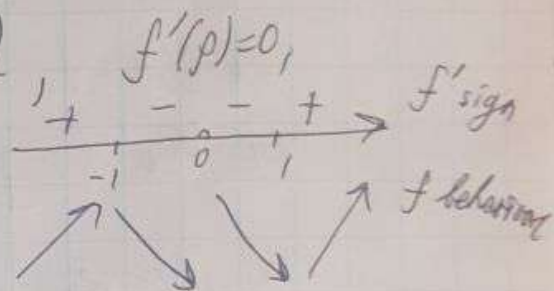 )
f'(p)=0,
, + - - + f' sign
-1 0 1
f behavior